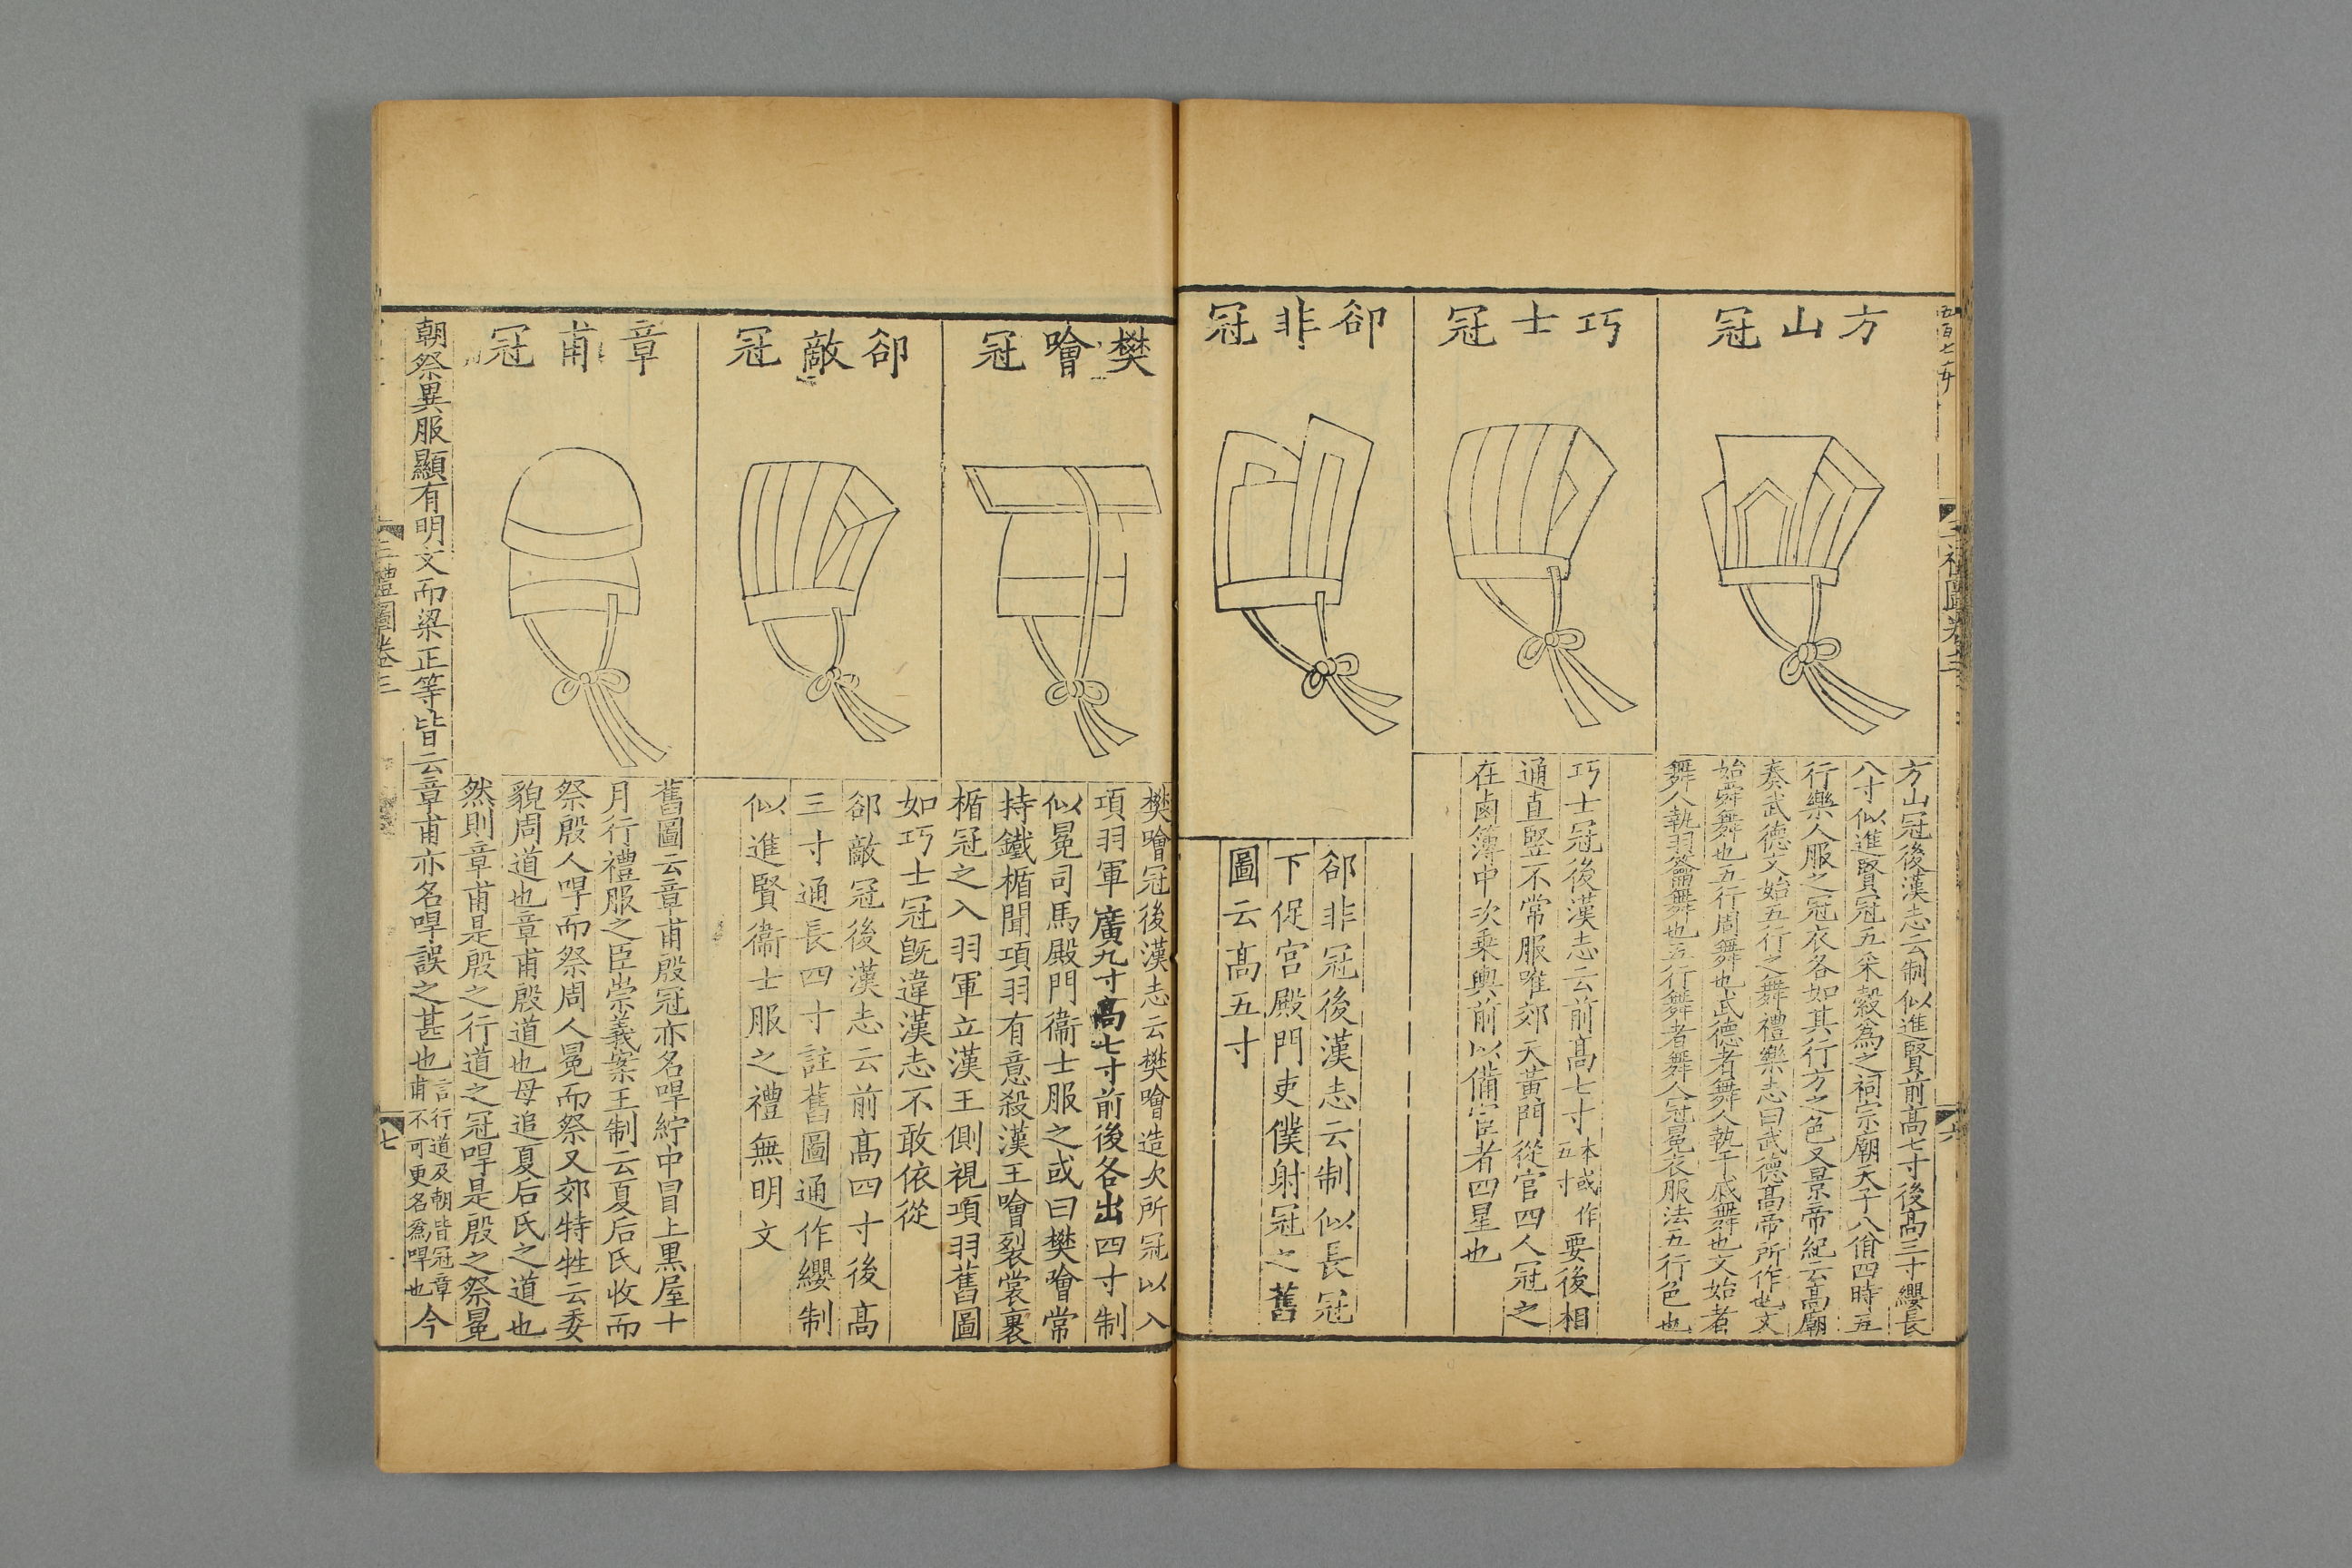 方山冠
方山冠後漢志云制似進賢前高七寸後高三寸纓長
八寸似進賢冠五采縠爲之祠宗廟天子八佾四時五
行樂人服之冠衣各如其行方之色又景帝紀云高廟
奏武德文始五行之舞禮樂志曰武德高帝所作也文
始舜舞也五行周舞也武德者舞人執干戚舞也文始者
舞人執羽籥舞也五行舞者舞人冠冕衣服法五行色也
巧士冠
巧士冠後漢志云前高七寸本或作五寸要後相
通直竪不常服唯郊天黃門從官四人冠之
在鹵簿中次乘輿前以備宦者四星也
郤非冠
郤非冠後漢志云制似長冠
下促宫殿門吏僕射冠之舊
圖云高五寸
三禮圖卷三
六
樊噲冠
樊噲冠後漢志云樊噲造次所冠以入
項羽軍廣九寸高七寸前後各出四寸制
似冕司馬殿門衞士服之或曰樊噲常
持鐵楯聞項羽有意殺漢王噲裂裳裹
楯冠之入羽軍立漢王側視項羽舊圖
如巧士冠旣違漢志不敢依從
郤敵冠
郤敵冠後漢志云前高四寸後高
三寸通長四寸註舊圖通作纓制
似進賢衞士服之禮無明文
章甫冠
舊圖云章甫殷冠亦名冔紵中冒上黒屋十
月行禮服之臣崇義案王制云夏后氏收而
祭殷人冔而祭周人冕而祭又郊特牲云委
貌周道也章甫殷道也母追夏后氏之道也
然則章甫是殷之行道之冠冔是殷之祭冕
朝祭異服顯有明文而梁正等皆云章甫亦名冔誤之甚也言行道及朝皆冠章甫不可更名爲冔也今
三禮圖卷三
七